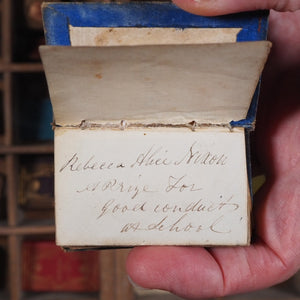 Rebecca Alice Nixon
A Prize for
Good conduct
at School